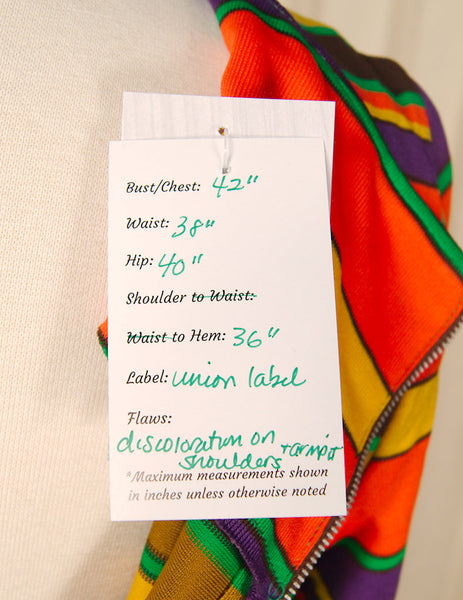 Bust/Chest: 42"
Waist: 38"
Hip: 40"
Shoulder to Waist:
Waist to Hem: 36"
Label: union label
Flaws:
discoloration on
shoulders + armpit
*Maximum measurements shown
in inches unless otherwise noted